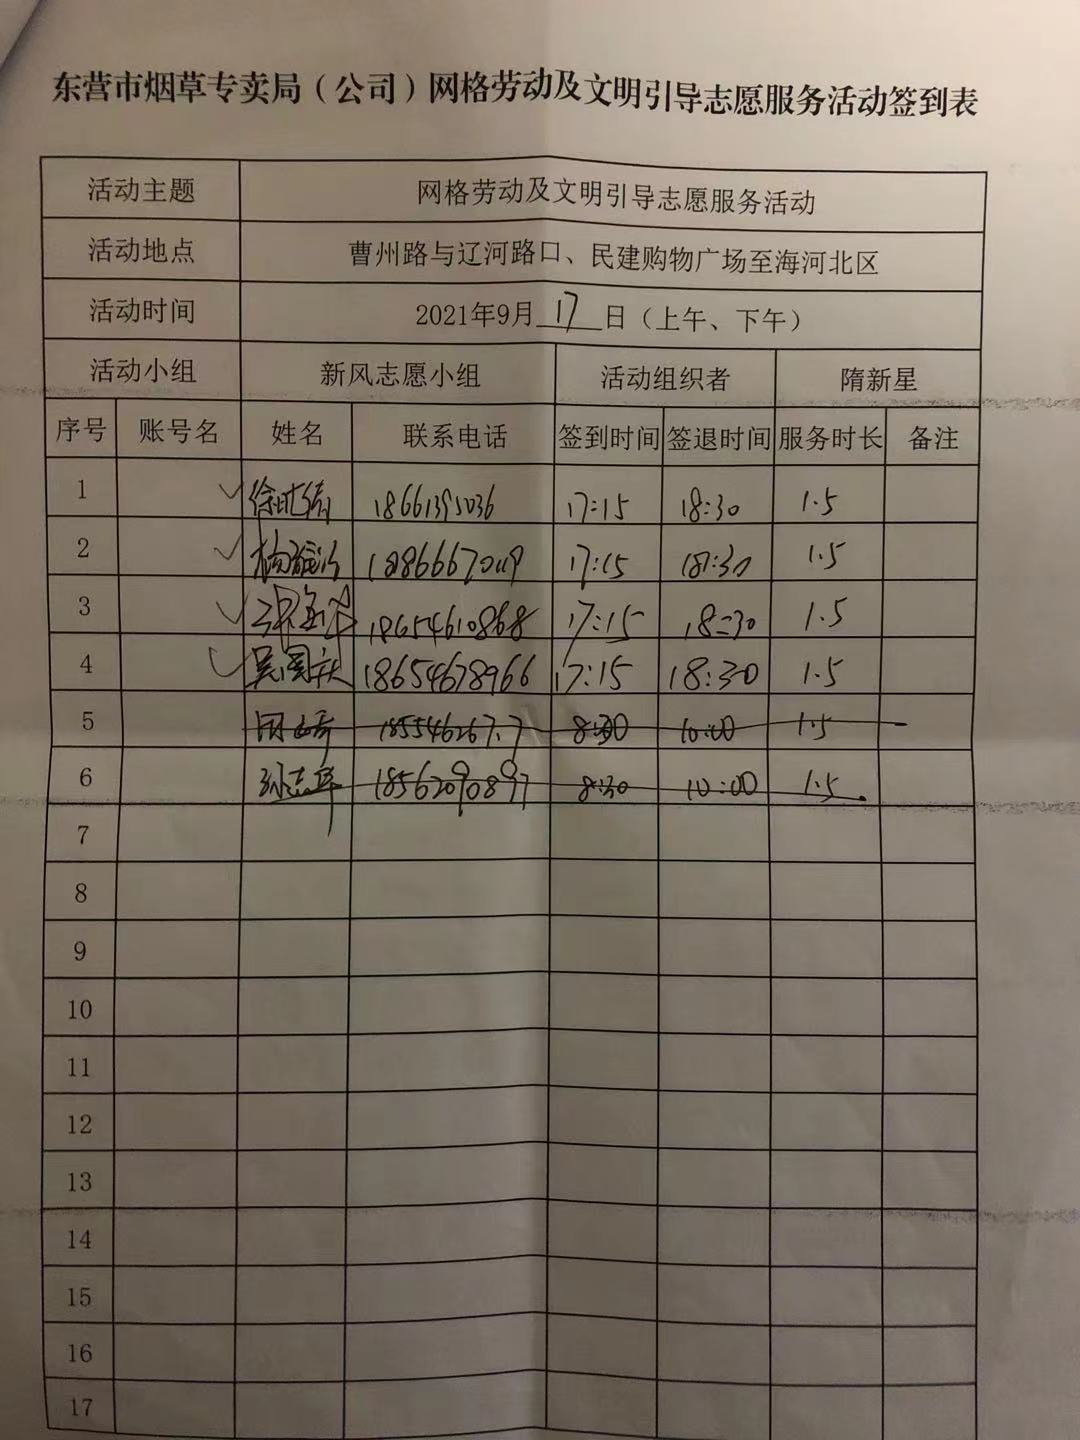 东营市烟草专卖局（公司）网格劳动及文明引导志愿服务活动签到表
活动主题 网格劳动及文明引导志愿服务活动
活动地点 曹州路与辽河路口、民建购物广场至海河北区
活动时间 2021年9月17日（上午、下午）
活动小组 新风志愿小组 活动组织者 隋新星
序号 账号名 姓名 联系电话 签到时间 签退时间 服务时长 备注
1 18661395036 17:15 18:30 1.5
2 17:15 18:30 1.5
3 18654610868 17:15 18:30 1.5
4 吴国庆 18654678966 17:15 18:30 1.5
5 8:30 10:00 1.5
6 18562090897 8:30 10:00 1.5
7
8
9
10
11
12
13
14
15
16
17